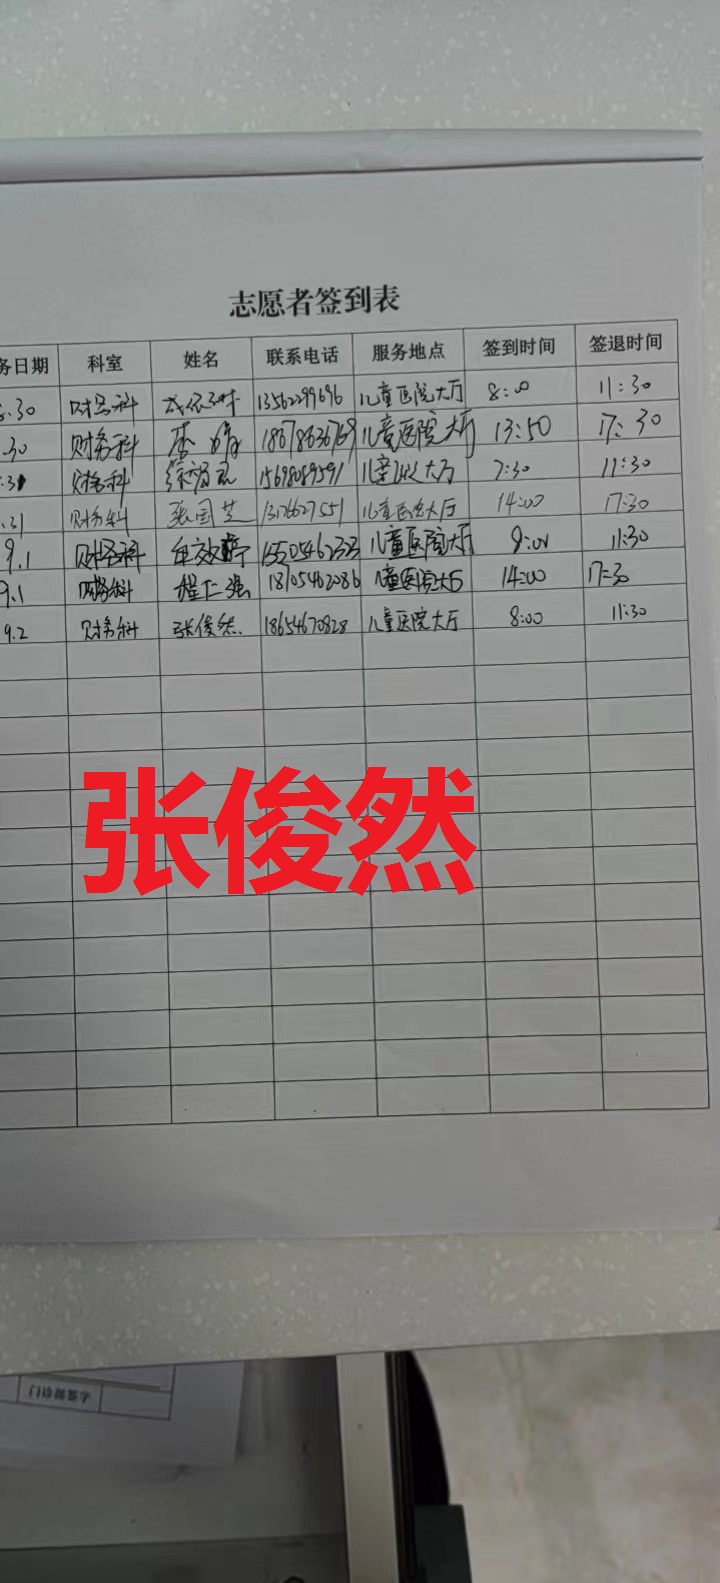 志愿者签到表
务日期 科室 姓名 联系电话 服务地点 签到时间 签退时间
.30 财务科 13562299696 儿童医院大厅 8:00 11:30
.30 财务科 李婧 18678636769 儿童医院大厅 13:50 17:30
财务科 15698089591 儿童 大厅 7:30 11:30
.31 财务科 张国芝 儿童医院大厅 14:00 17:30
9.1 财务科 15505462323 儿童医院大厅 11:30
9.1 财务科 程仁强 18705462086 儿童医院大厅 14:00 17:30
9.2 财务科 张俊然 18654670828 儿童医院大厅 8:00 11:30
张俊然